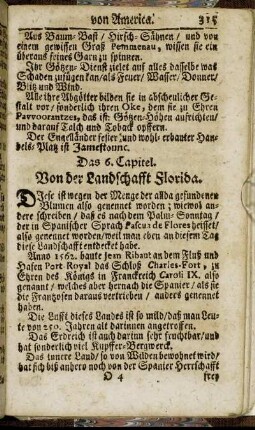 von America. 315
Aus Baum-Bast / Hirsch-Sähnen / und von
einem gewissen Graß Pemmenau, wissen sie ein
überaus feines Garn zu spinnen.
Ihr Götzen-Dienst zielet auf alles dasselbe was
Schaden zufügen kan/als Feuer/ Wasser/ Donner/
Blitz und Wind.
Alle ihre Abgötter bilden sie in abscheulicher Ge-
stalt vor/sonderlich ihren Oke, dem sie zu Ehren
Pavvoorantzes, das ist: Götzen-Höhen aufrichten/
und darauf Talch und Toback opffern.
Der Engeländer feiner und wohl-erbauter Han-
dels-Platz ist Jamestounc.
Das 6. Capitel.
Von der Landschafft Florida.
Diese ist wegen der Menge der allda gefundenen
Blumen also genennet worden; wiewol an-
dere schreiben / daß es nach dem Palm-Sonntag /
der in Spanischer Sprach Pascua de Flores heisset/
also genennet worden/weil man eben an diesem Tag
diese Landschafft entdecket habe.
Anno 1562. baute Jean Ribaut an dem Fluß und
Hafen Port-Royal das Schloß Charles-Fort, zu
Ehren des Königs in Franckreich Caroli IX. also
genannt / welches aber hernach die Spanier/ als sie
die Frantzosen daraus vertrieben / anders genennet
haben.
Die Lufft dieses Landes ist so mild/daß man Leu-
te von 250. Jahren alt darinnen angetroffen.
Das Erdreich ist auch darum sehr fruchtbar/und
hat sonderlich viel Kupffer-Bergwerck.
Das innere Land/ so von Wilden bewohnet wird/
hat sich biß anhero noch von der Spanier Herrschafft
O 4 frey